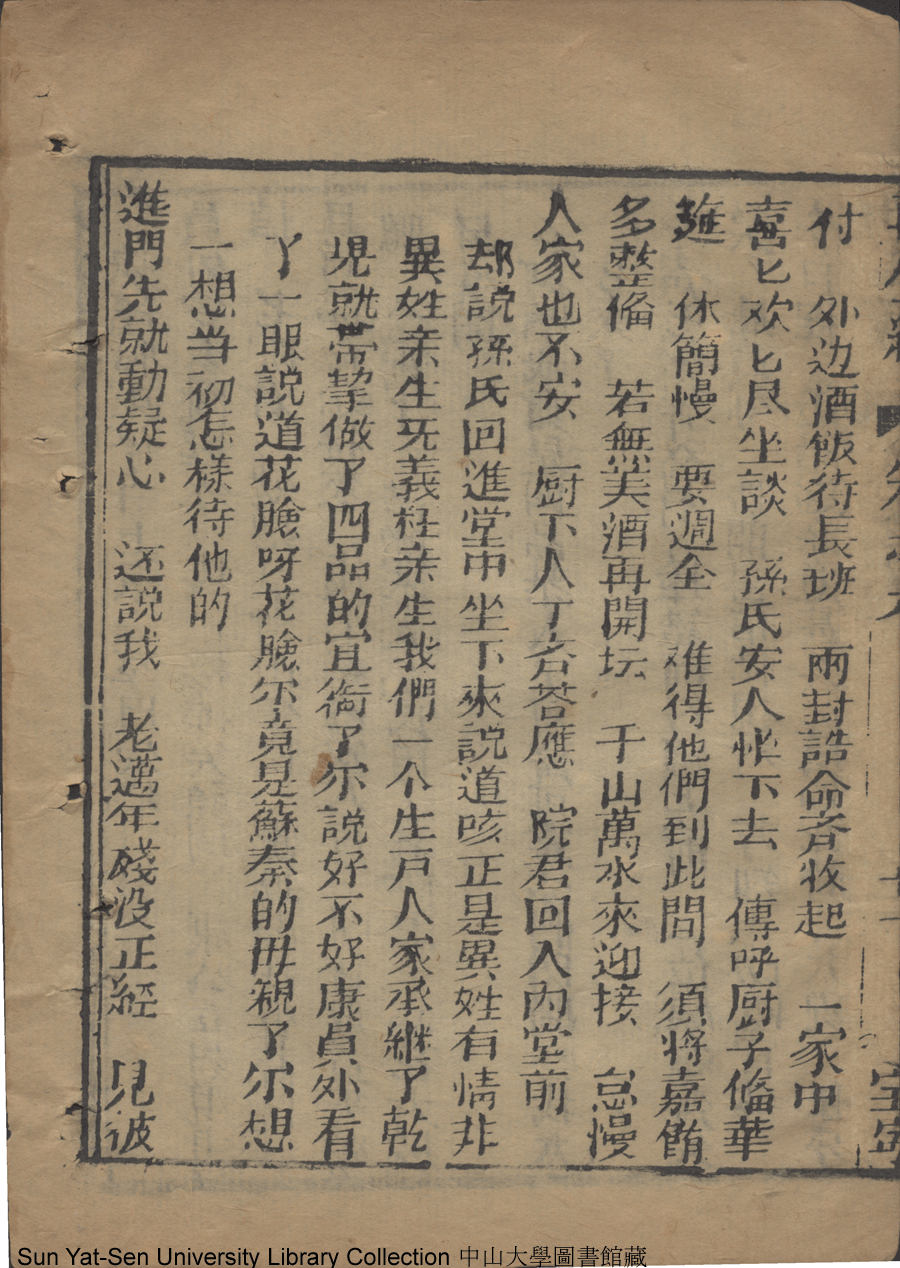 付　外边酒飯待長班　兩封誥命斉收起　一家中
喜匕欢匕尽坐談　孫氏安人坐下去　傳呼厨子俻華
筵　休簡慢　要週全　难得他們到此間　須将嘉餚
多整俻　若無美酒再開坛　千山萬水來迎接　怠慢
人家也不安　厨下人丁斉荅應　院君回入内堂前
却說孫氏回進堂中坐下來說道咳正是異姓有情非
異姓亲生旡義枉亲生我們一个生戸人家承継了乾
児就帯挈做了四品的宜衔了尔說好不好康員外看
丫一眼說道花臉呀花臉尔竟是蘇秦的毌親了尔想
一想当初怎様待他的
進門先就動疑心　还說我　老邁年殘没正經　見彼
Sun Yat-Sen University Library Collection 中山大學圖書館藏